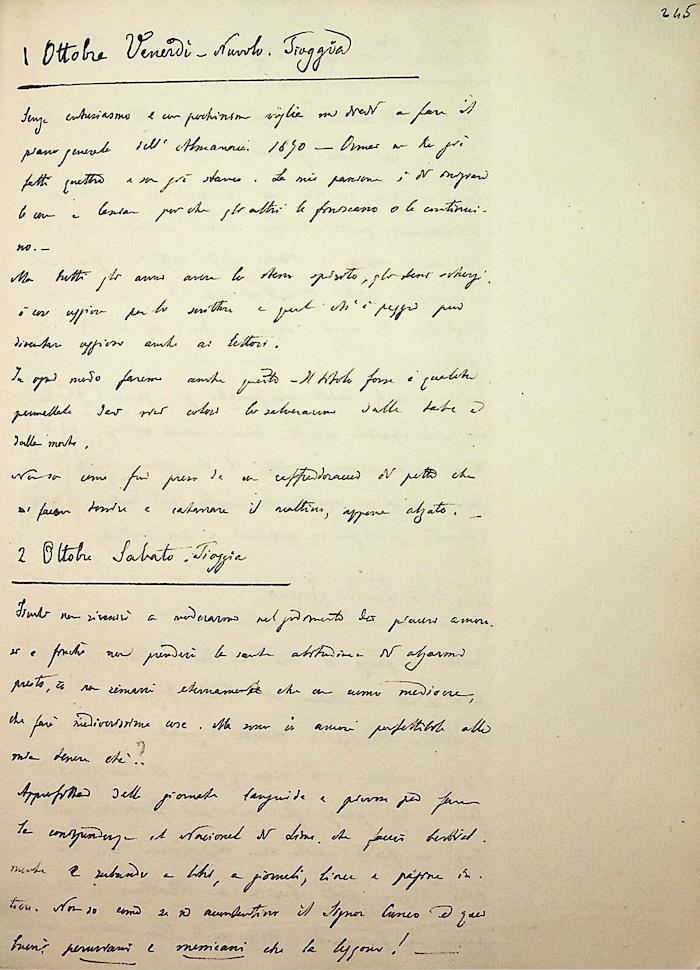 245
1 Ottobre Venerdì – Nuvolo. Pioggia
Senza entusiasmo e con pochissima voglia mi diedi a fare il
piano generale dell'Almanacco 1890 — Ormai ne ho già
fatti quattro e son già stanco. La mia passione è di
le cose e lasciar poi che gli altri le finiscano o le continui-
no. –
Ma tutti gli anni avere lo stesso spirito, gli stessi scherzi,
è cosa uggiosa per lo scrittore e quel ch'è peggio può
diventare uggiosa anche ai lettori.
In ogni modo faremo anche questo – Il titolo forse e qualche
pennellata dai vivi colori lo salveranno dalla tabe e
dalla morte.
Non so come fui preso da un raffreddoraccio di petto che
mi fa tossire e catarrare il mattino, appena alzato. –
2 Ottobre Sabato. Pioggia
Finché non riuscirò a moderarmi nel godimento dei piaceri amoro-
si e finché non prenderò la santa abitudine di alzarmi
presto, io non rimarrò eternamente che un uomo mediocre,
che farà mediocrissime cose. Ma sono io ancora perfettibile alla
mia tenera età?
Approfittai della giornata languida e piovosa per fare
la corrispondenza al Nacional di Lima, che faccio bestial-
mente e rubando a libri, a giornali, linee e pagine in-
tiere. Non so come se ne accontentino il Signor Cuneo ed quei
buoni peruviani e messicani che la leggono! —